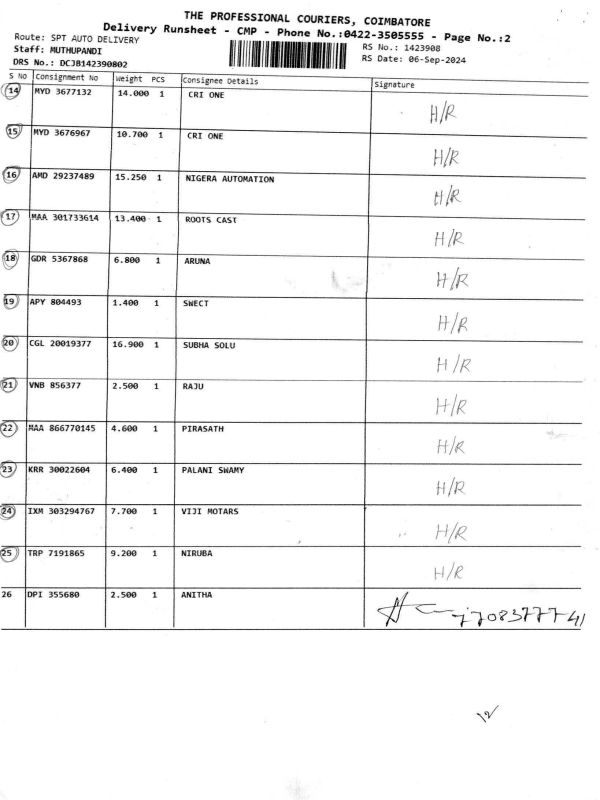 THE PROFESSIONAL COURIERS, COIMBATORE
Delivery Runsheet - CMP - Phone No.:0422-3505555 - Page No.:2
Route: SPT AUTO DELIVERY
RS No.: 1423908
Staff: MUTHUPANDI
RS Date: 06-Sep-2024
DRS No.: DCJB142390802
S No Consignment No Weight PCS Consignee Details Signature
14 MYD 3677132 14.000 1 CRI ONE H/R
15 MYD 3676967 10.700 1 CRI ONE H/R
16 AMD 29237489 15.250 1 NIGERA AUTOMATION H/R
17 MAA 301733614 13.400 1 ROOTS CAST H/R
18 GDR 5367868 6.800 1 ARUNA H/R
19 APY 804493 1.400 1 SWECT H/R
20 CGL 20019377 16.900 1 SUBHA SOLU H/R
21 VNB 856377 2.500 1 RAJU H/R
22 MAA 866770145 4.600 1 PIRASATH H/R
23 KRR 30022604 6.400 1 PALANI SWAMY H/R
24 IXM 303294767 7.700 1 VIJI MOTARS H/R
25 TRP 7191865 9.200 1 NIRUBA H/R
26 DPI 355680 2.500 1 ANITHA
12